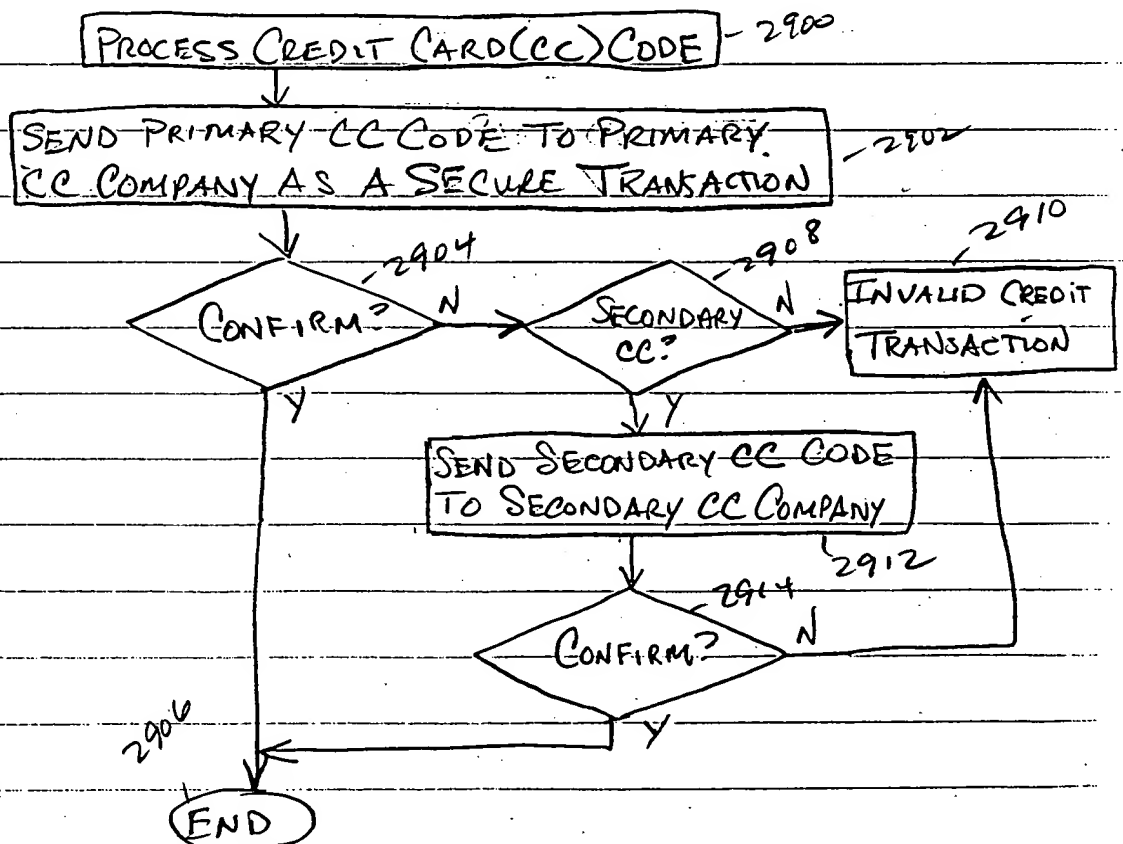 PROCESS CREDIT CARD(CC) CODE
2900
SEND PRIMARY CC CODE TO PRIMARY
CC COMPANY AS A SECURE TRANSACTION
2902
CONFIRM?
2904
N
Y
SECONDARY
CC?
2908
N
Y
INVALID CREDIT
TRANSACTION
2910
SEND SECONDARY CC CODE
TO SECONDARY CC COMPANY
2912
CONFIRM?
2914
N
Y
2906
END